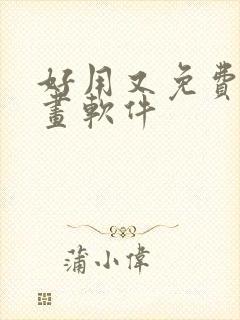 好用又免費
畫軟件
蒲小偉